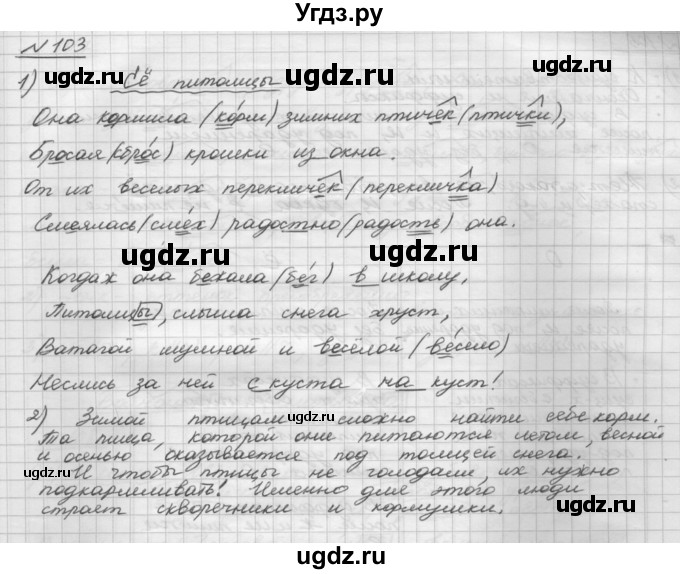 Угдз.ру
№ 103
1) Её питомцы
Она кормила (ко́рм) зимних птичек (птички),
Бросая (бро́с) крошки из окна.
От их веселых перекличек (перекличка)
Смеялась (сме́х) радостно (радость) она.
Когда ж она бежала (бе́г) в школу,
Питомцы, слыша снега хруст,
Ватагой шумной и весёлой (ве́село)
Неслись за ней с куста на куст!
2) Зимой птицам сложно найти себе корм.
Та пища, которой они питаются летом, весной
и осенью оказывается под толщей снега.
И чтобы птицы не голодали, их нужно
подкармливать! Именно для этого люди
строят скворечники и кормушки.
ugdz.ru
ugdz.ru
ugdz.ru
ugdz.ru
ugdz.ru
ugdz.ru
ugdz.ru
ugdz.ru
ugdz.ru
ugdz.ru
ugdz.ru
ugdz.ru